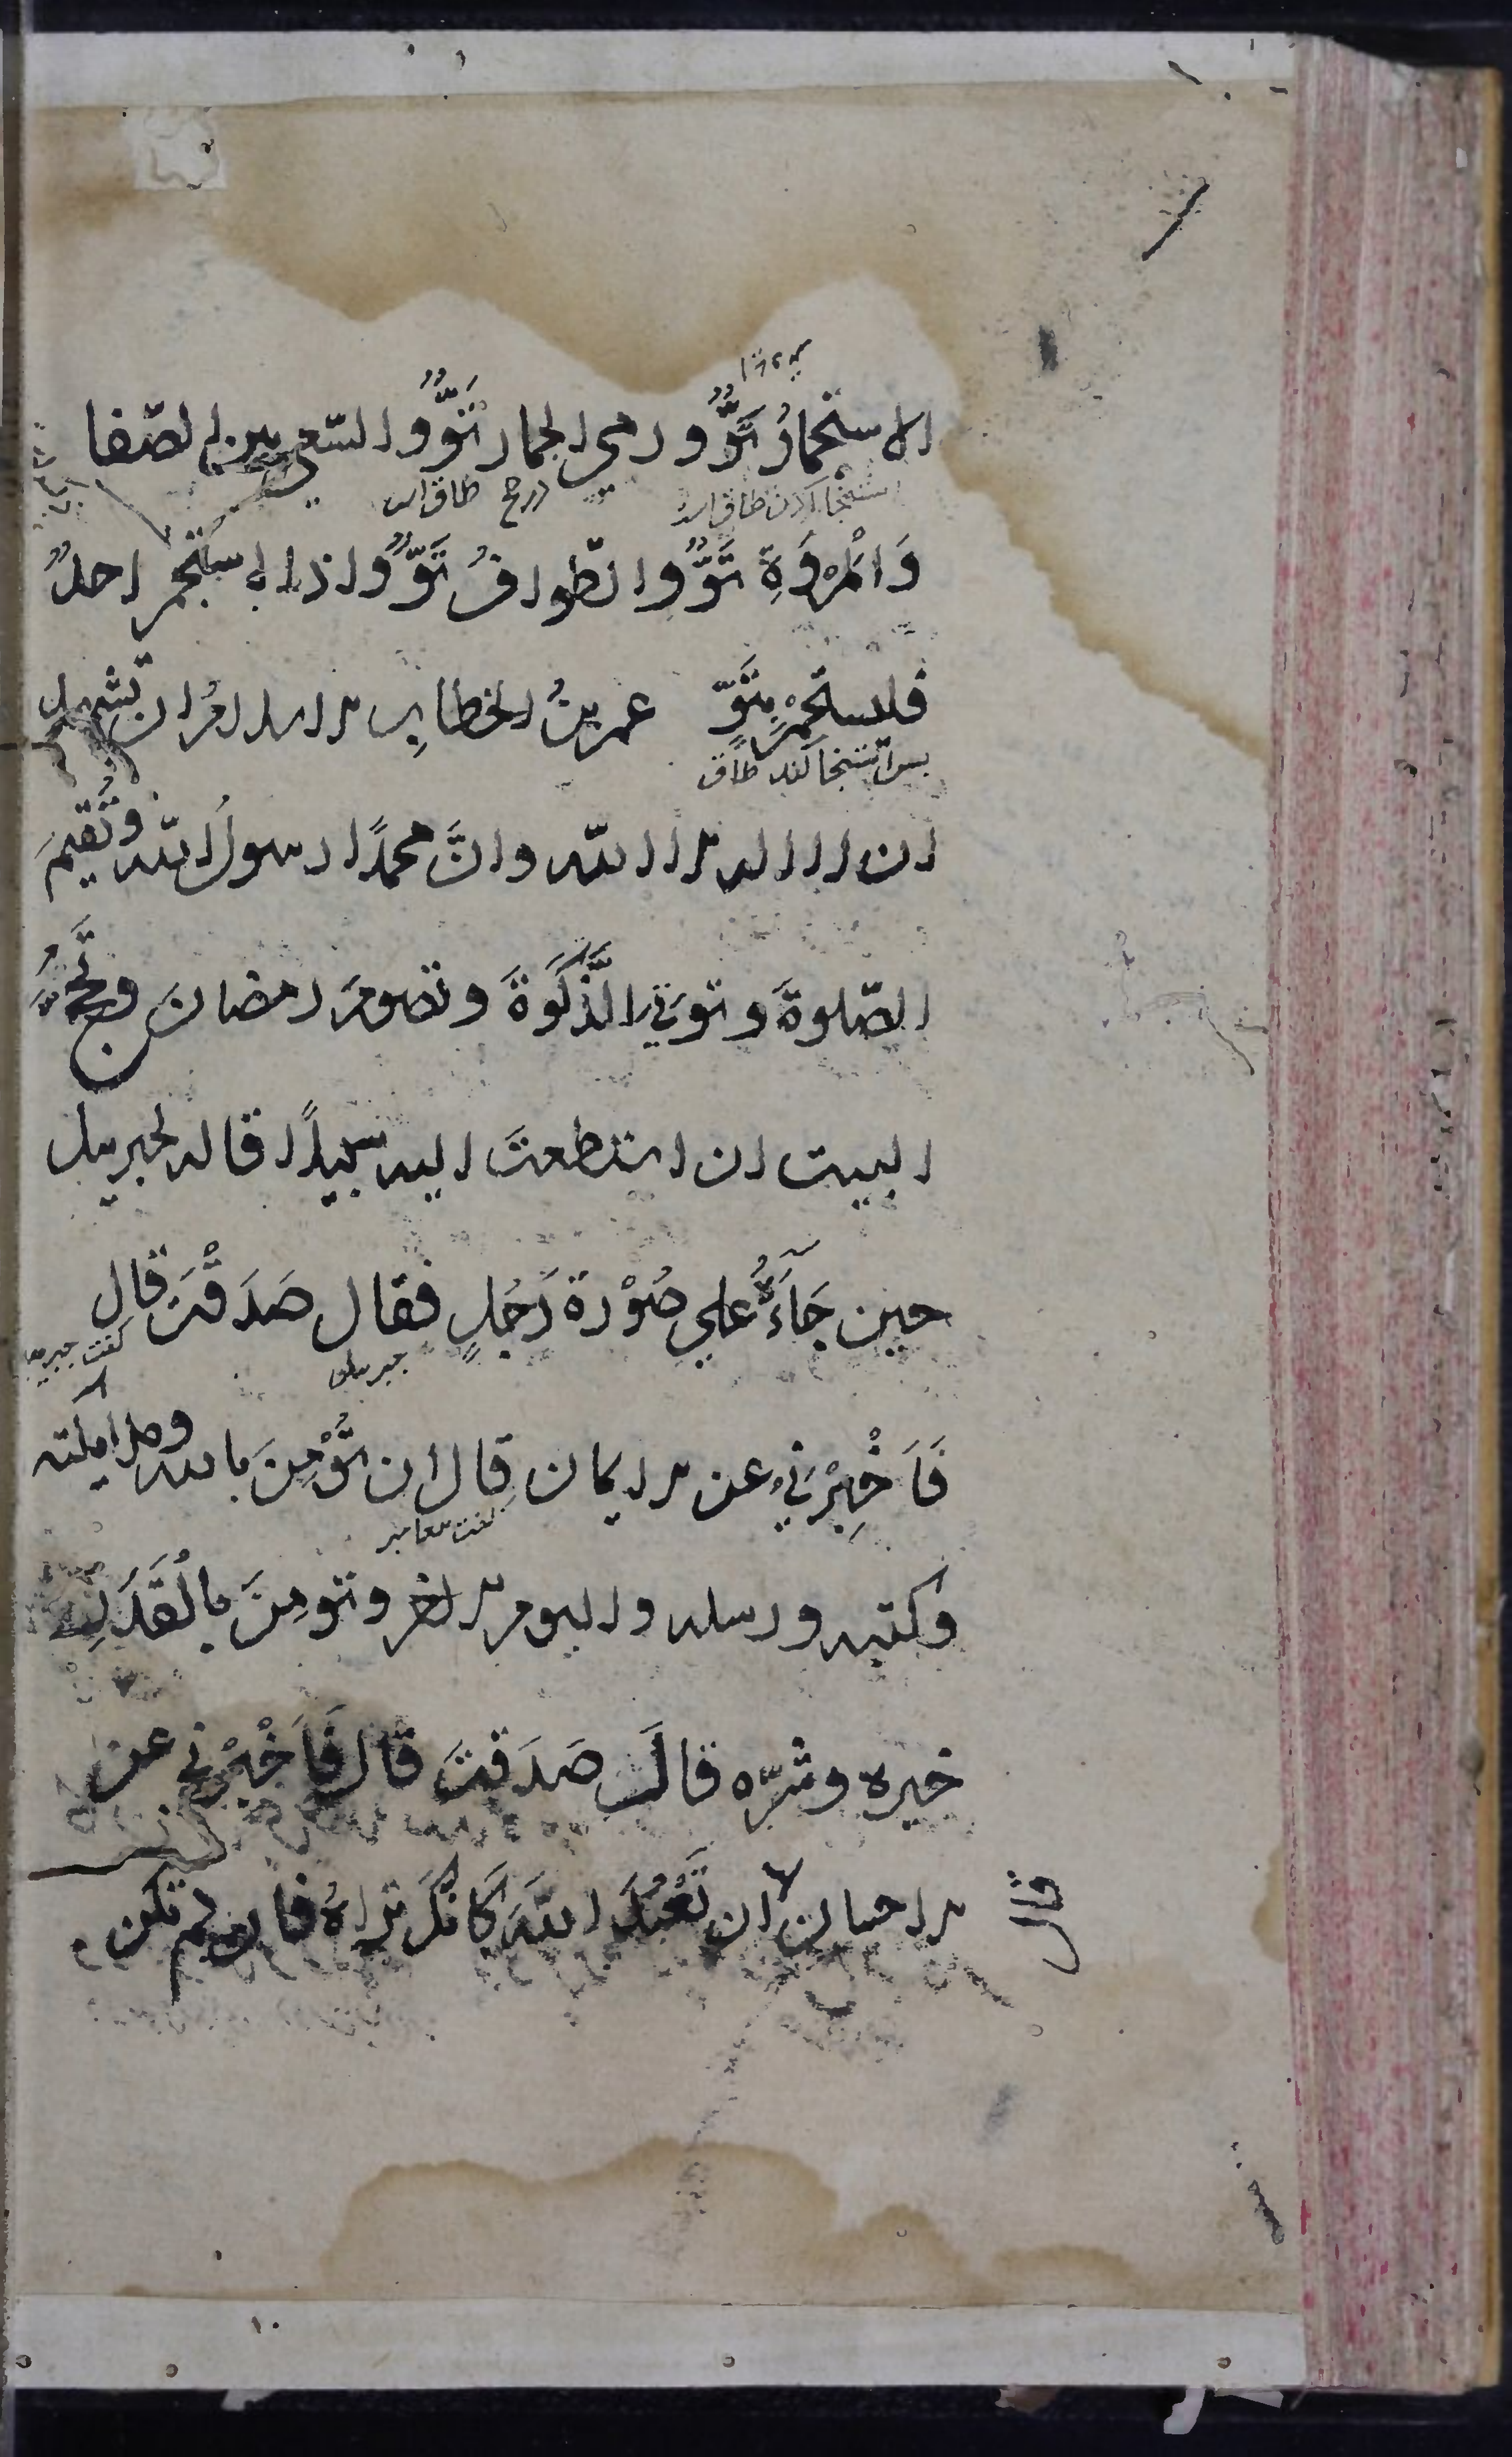 الاستجمارُ تَوٌّ ورمي الجمار تَوٌّ والسّعي بين الصّفا
استنجا کردن طاق است
طاق است
وَالْمَرْوَةِ تَوٌّ والطّوافُ تَوٌّ واذا استجمر احدكم
فليستجمِرْ بِتَوٍّ عمر بنُ الخطابِ الاسلامُ ان تشهد
پس استنجا کند طاق
ان لا اله الا اللّه وانَّ محمدًا رسولُ اللّه وتُقيمَ
الصّلوةَ وتوتيَ الزَّكَوةَ وتصومَ رمضانَ وتَحُجَّ
البيت ان استطعتَ اليه سبيلًا قاله لجبريل
حين جَآءَهُ علي صُوْرة رَجُلٍ فقال صَدَقْتَ قال
جبريل
كفت جبريل
فَاَخْبِرْنيْ عن الايمان قال ان تُؤْمِنَ بالله وملايكته
كفت پیغامبر
وكتبه ورسله واليوم الاخر وتومِنَ بالْقَدَرِ
خيره وشرّه قالَ صَدَقتَ قال فَاَخْبِرْني عن
الاحسان قال ان تَعْبُدَ اللّهَ كَانَّكَ تراهُ فان لم تكن
١٠